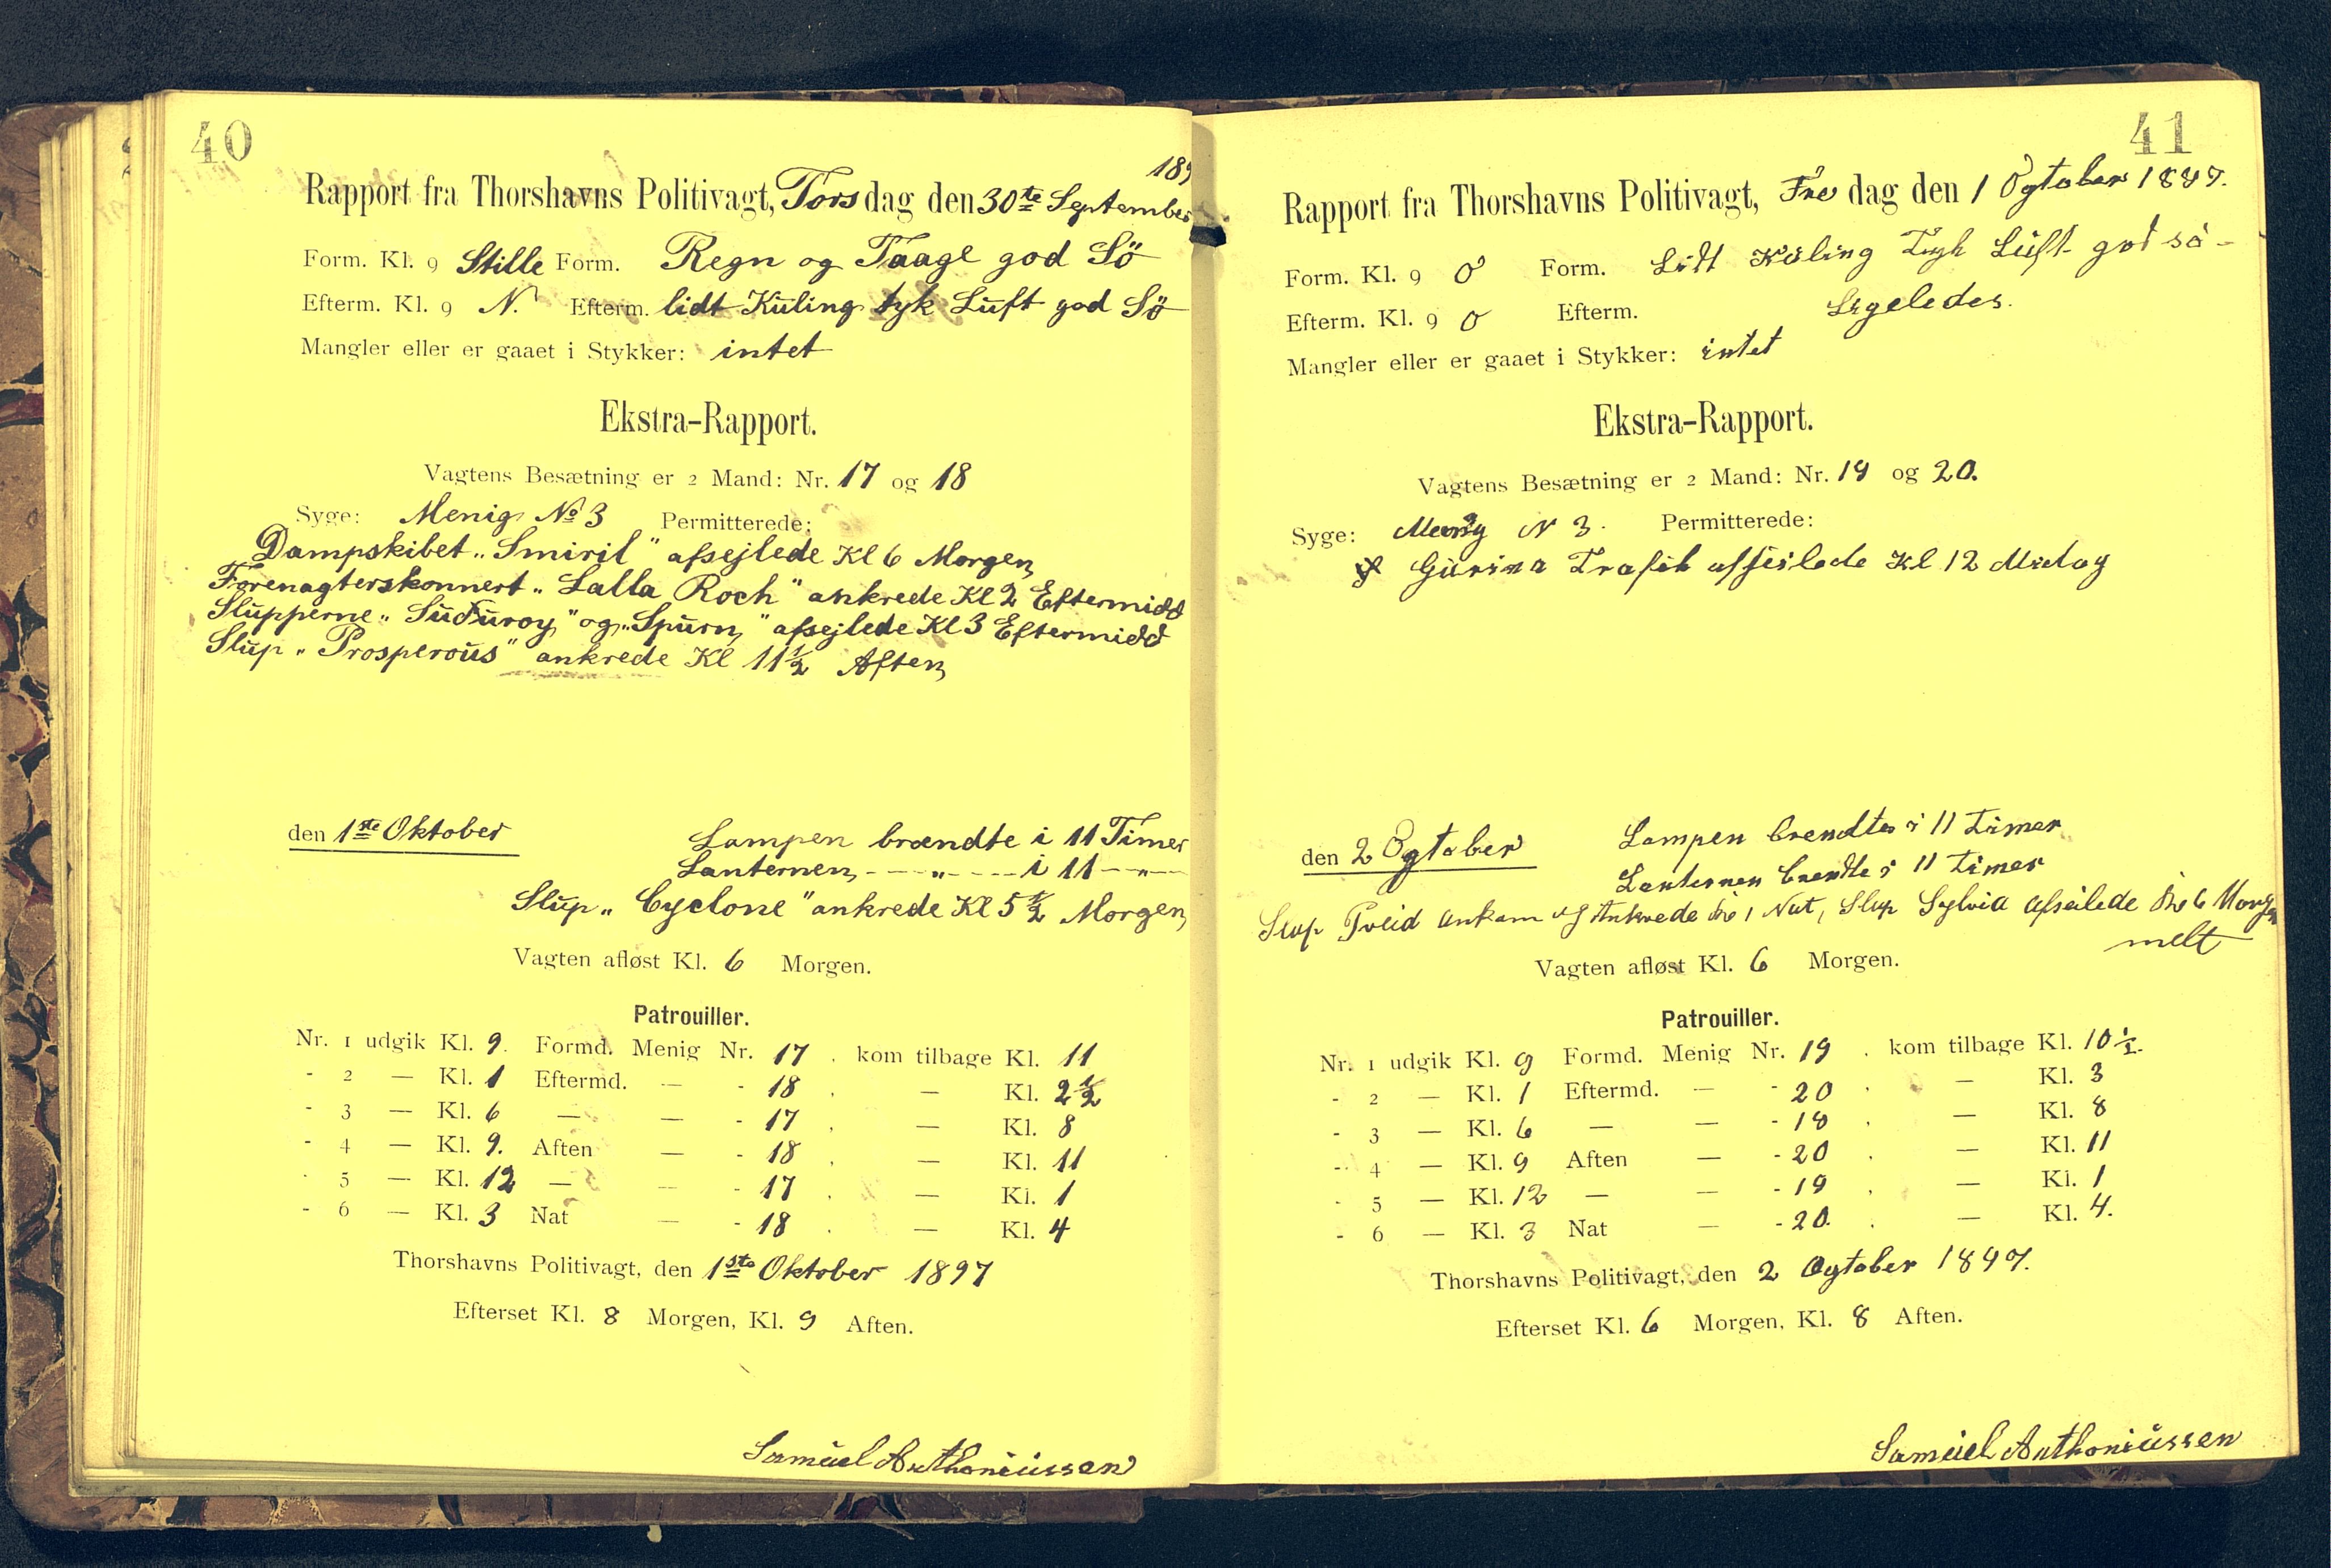 40
189
Rapport fra Thorshavns Politivagt, Torsdag den 30te September
Form. Kl. 9 Stille Form. Regn og Taage god Sö
Efterm. Kl. 9 N. Efterm. lidt Kuling tyk Luft god Sö
Mangler eller er gaaet i Stykker: intet
Ekstra-Rapport.
Vagtens Besætning er 2 Mand: Nr. 17 og 18
Syge: Menig No 3 Permitterede:
Dampskibet „Smiril" afsejlede Kl 6 Morgen
Forenagterskonnert „Lalla Roch" ankrede Kl 2 Eftermidd
Slupperne „Suduroy" og „Spurn" afsejlede Kl 3 Eftermidd
Slup „Prosperous" ankrede Kl 11½ Aften
den 1ste Oktober
Lampen brændte i 11 Timer
Lanternen - - „ - - - i 11 - „ -
Slup „Cyclone" ankrede Kl 5½ Morgen
Vagten afløst Kl. 6 Morgen.
Patrouiller.
Nr. 1 udgik Kl. 9. Formd. Menig Nr. 17 . kom tilbage Kl. 11
- 2 — Kl. 1 Eftermd. — - 18 . — Kl. 2½
- 3 — Kl. 6 — — - 17 . — Kl. 8
- 4 — Kl. 9. Aften — - 18 . — Kl. 11
- 5 — Kl. 12 — — - 17 . — Kl. 1
- 6 — Kl. 3 Nat — - 18 . — Kl. 4
Thorshavns Politivagt, den 1ste Oktober 1897
Efterset Kl. 8 Morgen, Kl. 9 Aften.
Samuel Anthoniussen
41
Rapport fra Thorshavns Politivagt, Fre dag den 1 Ogtober 1897.
Form. Kl. 9 O Form. Lidt Kuling Tyk Luft god sö -
Efterm. Kl. 9 O Efterm. Ligeledes.
Mangler eller er gaaet i Stykker: intet
Ekstra-Rapport.
Vagtens Besætning er 2 Mand: Nr. 19 og 20.
Syge: Menig N 3. Permitterede:
Trafik afseilede Kl 12 Midag
den 2 Ogtober
Lampen brendte i 11 Timer
Lanternen brendte i 11 Timer
Slup Ankom og Ankrede Kl 1 Nat, Slup Sylvia afseilede Kl 6 Morgen
melt
Vagten afløst Kl. 6 Morgen.
Patrouiller.
Nr. 1 udgik Kl. 9 Formd. Menig Nr. 19 . kom tilbage Kl. 10½.
- 2 — Kl. 1 Eftermd. — - 20 . — Kl. 3
- 3 — Kl. 6 — — - 19 . — Kl. 8
- 4 — Kl. 9 Aften — - 20 . — Kl. 11
- 5 — Kl. 12 — — - 19 . — Kl. 1
- 6 — Kl. 3 Nat — - 20. . — Kl. 4.
Thorshavns Politivagt, den 2 Ogtober 1897.
Efterset Kl. 6 Morgen, Kl. 8 Aften.
Samuel Anthoniussen